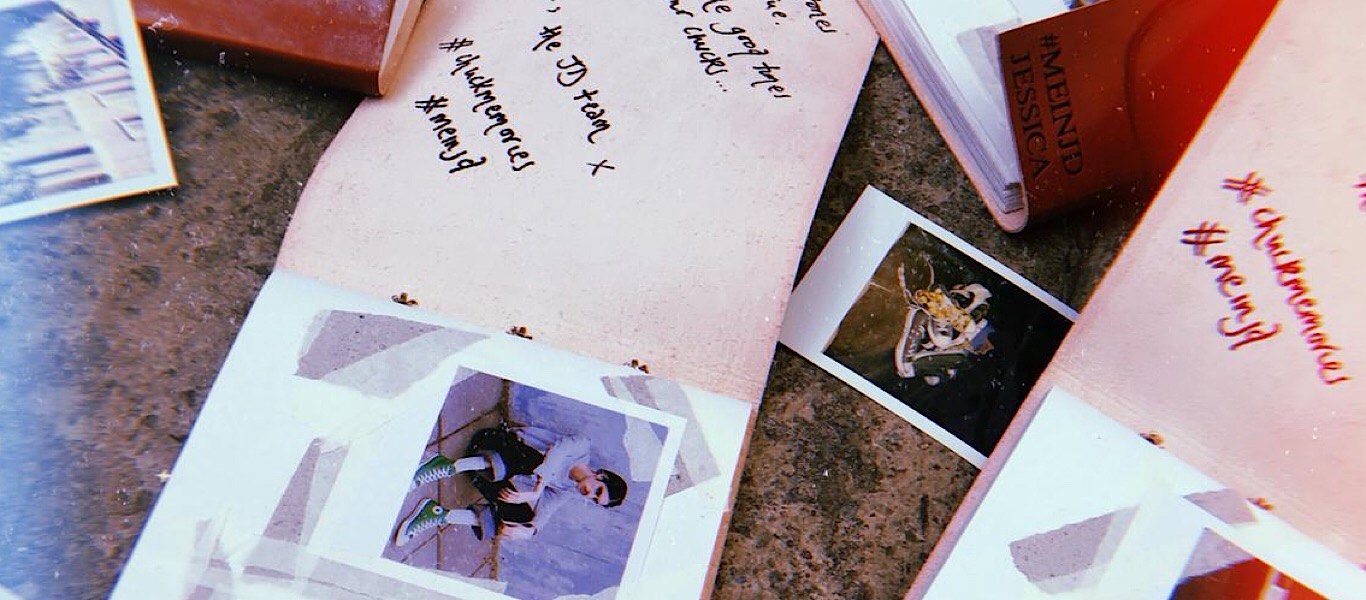 good
chucks...
the JD team x
#chuckmemories
#meinjd
#MEINJD
JESSICA
#chuckmemories
#meinjd